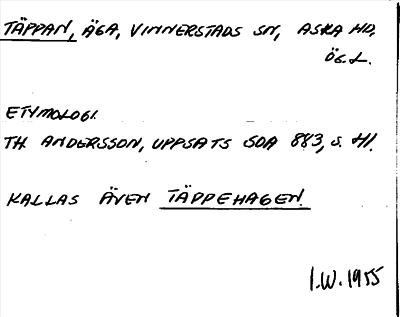 TÄPPAN, ÄGA, VINNERSTADS SN, ASKA HD,
ÖG.L.
ETYMOLOGI.
TH. ANDERSSON, UPPSATS SOA 883, s. 41.
KALLAS ÄVEN TÄPPEHAGEN.
I.W. 1955